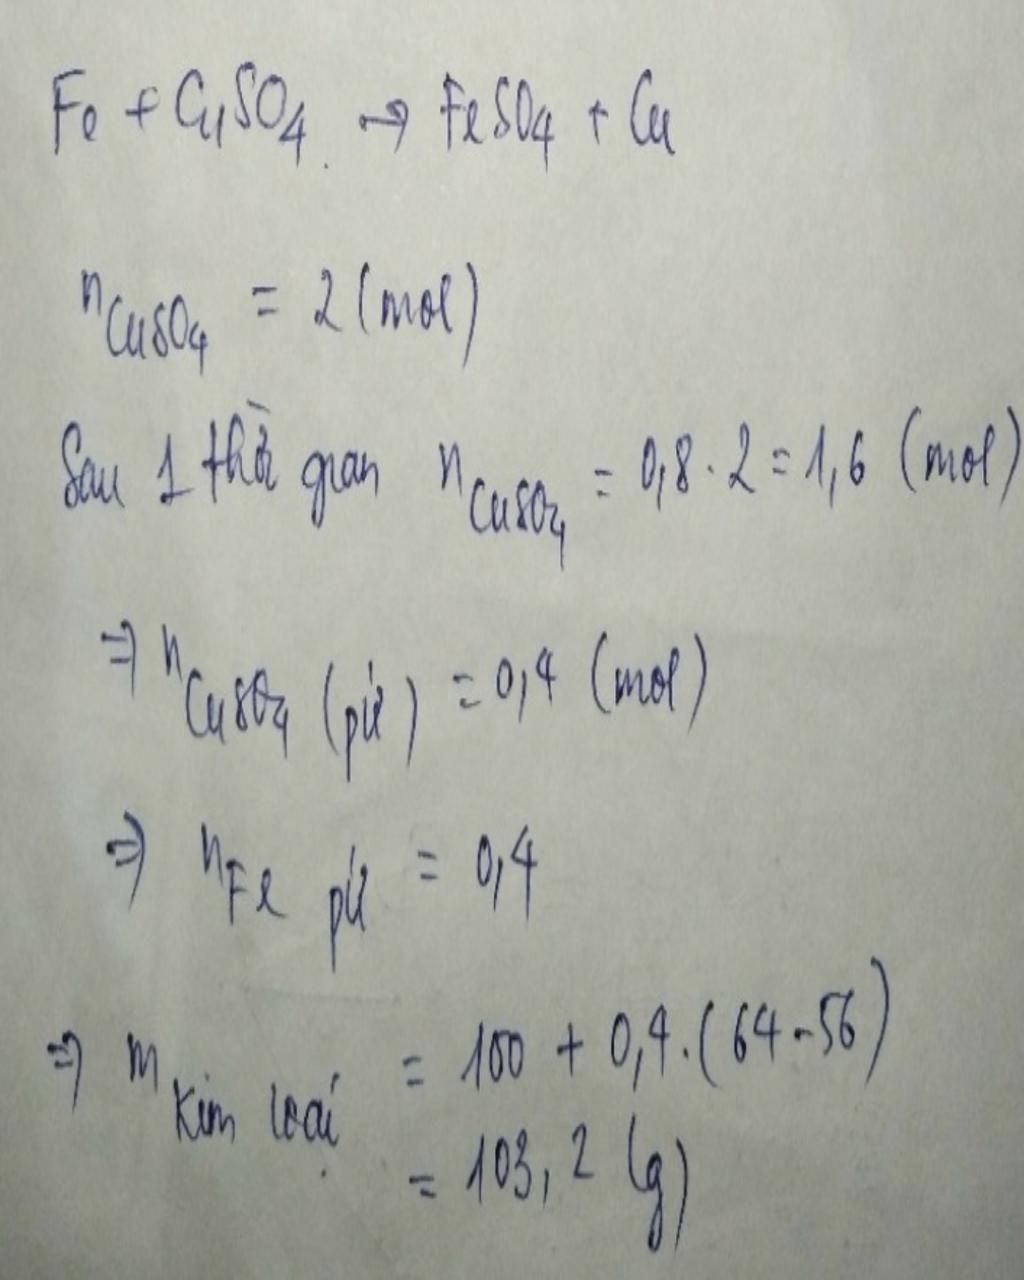 Fe + CuSO4 → FeSO4 + Cu
nCuSO4 = 2 (mol)
Sau 1 thời gian nCuSO4 = 0,8 . 2 = 1,6 (mol)
=> nCuSO4 (pứ) = 0,4 (mol)
=> nFe pứ = 0,4
=> m kim loại = 100 + 0,4.(64-56)
= 103,2 (g)